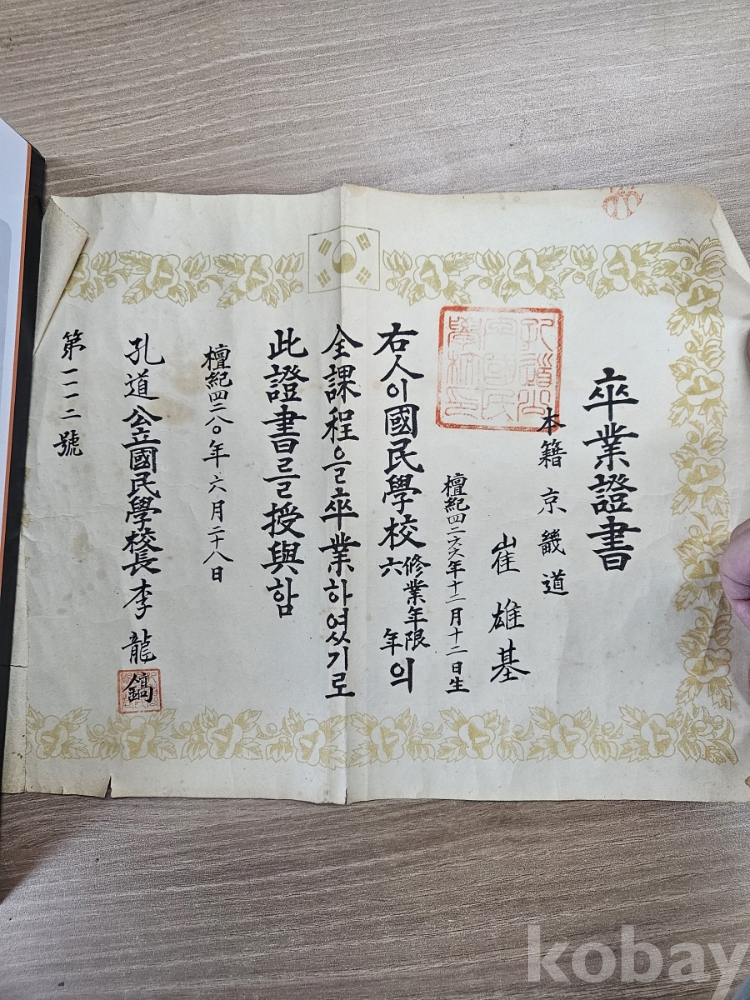 卒業證書
本籍 京畿道
崔雄基
檀紀四二六六年十二月十二日生
右人이國民學校修業年限六年의
全課程을卒業하였기로
此證書를授與함
檀紀四二八〇年六月二十八日
孔道公立國民學校長 李龍鎬
第一一二號
kobay